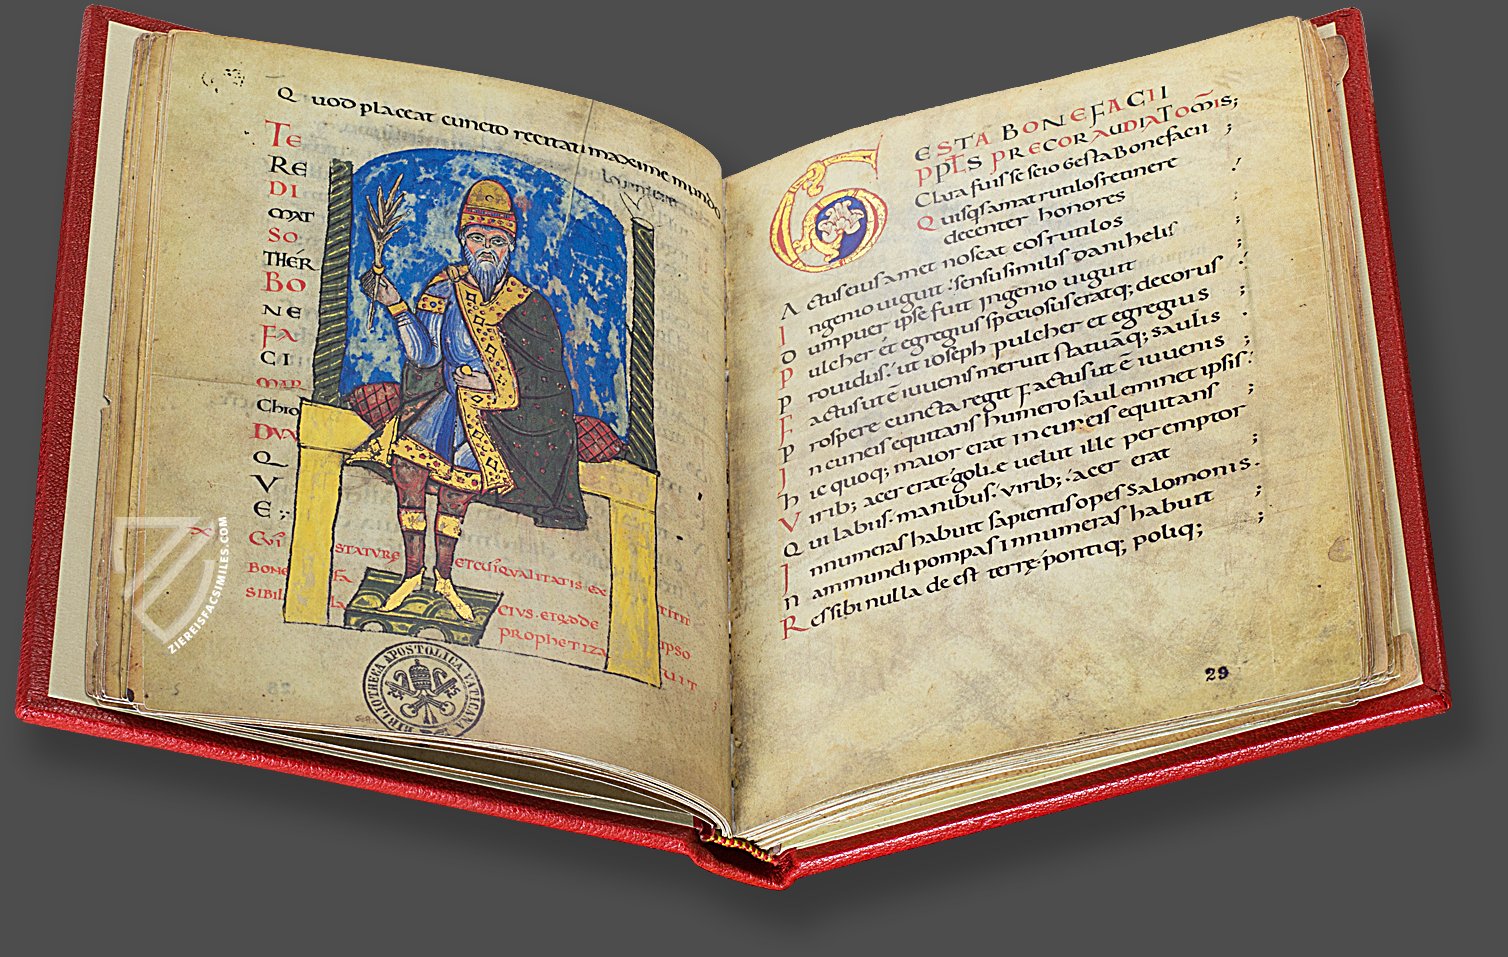 Quod placeat cuncto recitati maxime mundo
TE
RE
DI
MAT
SO
THER
BO
NE
FA
CI
MAR
Chio
DVX
Q
V
E ;
STATURĘ ET EIUS QVALITATIS EX
BONE FA
SIBIL LA CIVS · EIQ DE IPSO
PROPhETIZA UIT
BIBLIOTHECA APOSTOLICA VATICANA
ZIEREISFACSIMILES.COM
GESTA BONEFACII
PPĒS PRECOR AUDIATOMĪS;
Clara fuisse scio gesta Bonefacii ;
Quisqs amat rutilos retinere
decenter honores
Actus eius amet noscat eos rutilos ;
Ingenio uiguit : sensu similis danihelis
Dum puer ipse fuit Ingenio uiguit ;
Pulcher et egregius speciosus eratq; decorus
Prouidus : ut ioseph pulcher et egregius ;
Factus ut ē iuuenis meruit statuāq; saulis ·
Prospere cuncta regit Factus ut ē iuuenis ;
In cuneis equitans humero saul eminet ipsis :
hic quoq; maior erat in cuneis equitans ;
Virib; acer erat golie uelut ille peremptor
Qui labus manibus · virib; · acer erat ;
Innumeras habuit sapientis opes salomonis .
nam mundi pompas Innumeras habuit ;
Res sibi nulla de est terrę pontiq; poliq; ;
29